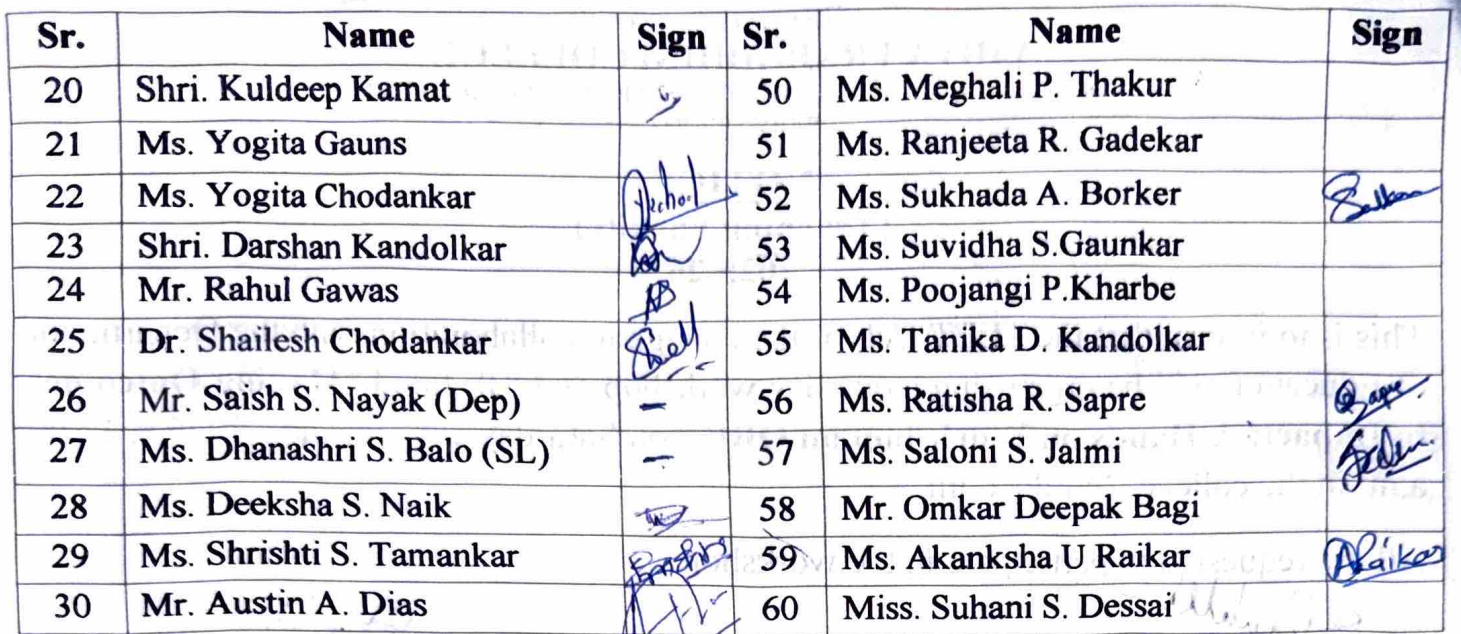 Sr. Name Sign Sr. Name Sign
20 Shri. Kuldeep Kamat 50 Ms. Meghali P. Thakur
21 Ms. Yogita Gauns 51 Ms. Ranjeeta R. Gadekar
22 Ms. Yogita Chodankar 52 Ms. Sukhada A. Borker
23 Shri. Darshan Kandolkar 53 Ms. Suvidha S.Gaunkar
24 Mr. Rahul Gawas 54 Ms. Poojangi P.Kharbe
25 Dr. Shailesh Chodankar 55 Ms. Tanika D. Kandolkar
26 Mr. Saish S. Nayak (Dep) – 56 Ms. Ratisha R. Sapre
27 Ms. Dhanashri S. Balo (SL) – 57 Ms. Saloni S. Jalmi
28 Ms. Deeksha S. Naik 58 Mr. Omkar Deepak Bagi
29 Ms. Shrishti S. Tamankar 59 Ms. Akanksha U Raikar ARaikar
30 Mr. Austin A. Dias 60 Miss. Suhani S. Dessai